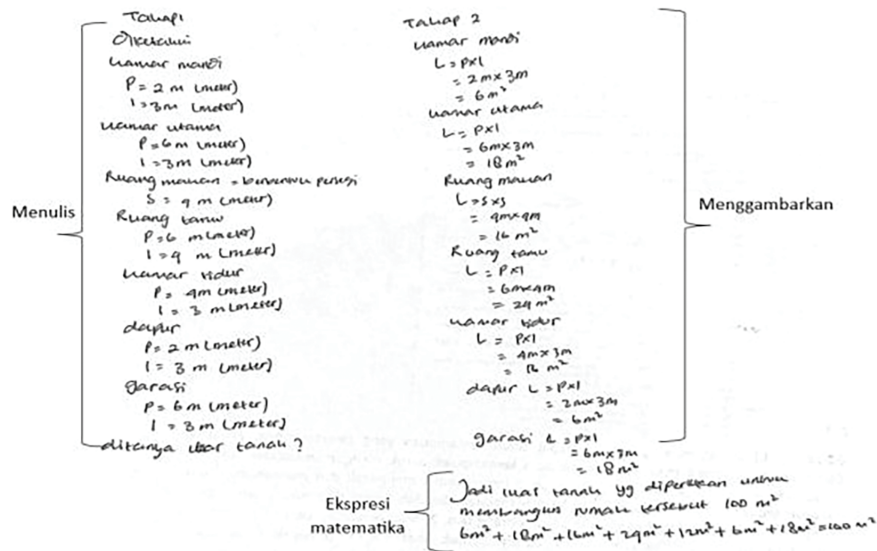 Menulis
Tahap 1
Diketahui
kamar mandi
P = 2 m (meter)
l = 3m (meter)
kamar utama
P = 6 m (meter)
l = 3 m (meter)
Ruang makan = berbentuk persegi
S = 4 m (meter)
Ruang tamu
P = 6 m (meter)
l = 4 m (meter)
kamar tidur
P = 4m (meter)
l = 3 m (meter)
dapur
P = 2 m (meter)
l = 3 m (meter)
garasi
P = 6 m (meter)
l = 3 m (meter)
ditanya luas tanah ?
Tahap 2
kamar mandi
L = P x l
= 2m x 3m
= 6 m²
kamar utama
L = P x l
= 6m x 3m
= 18 m²
Ruang makan
L = s x s
= 4m x 4m
= 16 m²
Ruang tamu
L = P x l
= 6m x 4m
= 24 m²
kamar tidur
L = P x l
= 4m x 3m
= m²
dapur L = P x l
= 2m x 3m
= 6 m²
garasi L = P x l
= 6m x 3m
= 18 m²
Menggambarkan
Ekspresi
matematika
Jadi luas tanah yg diperlukan untuk
membangun rumah tersebut 100 m²
6m² + 18m² + 16m² + 24m² + 12m² + 6m² + 18m² = 100 m²